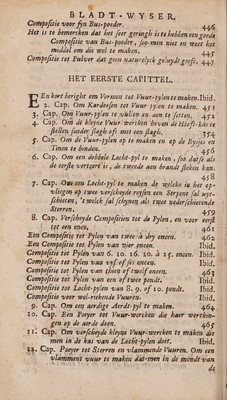 BLADT-WYSER.
Compositie voor fyn Bus-poeder. 446
Het is te bemercken dat het seer geringh is te hebben een goede
Compositie van Bus-poeder, soo-men niet en weet het
middel om die wel te maken. 447
Compositie tot Pulver dat geen natuerelyck geluydt geeft. 447
HET EERSTE CAPITTEL.
EEn kort beright om Vormen tot Vuur-pylen te maken. Ibid.
2. Cap. Om Kardoesen tot Vuur-pylen te maken. 451
3. Cap. Om Vuur-pylen te vullen en aen te setten. 452
4. Cap. Om de kleyne Vuur-werken boven de Hooft-lois te
stellen sonder slagh oft met een slagh. 354
5. Cap. Om de Vuur-pylen op te maken en op de Rysjes en
Tinen te binden. 456
6. Cap. Om een dobbele Locht-pyl te maken, soo datse als
de eerste verteert is, de tweede aen brandt steken kan.
458
7. Cap. Om een Locht-pyl te maken, de welcke in het op-
vliegen op twee verscheyde reysen een Serpent sal uyt-
schieten, 't welck sal schynen als twee nederschietende
Sterren. 459
8. Cap. Verscheyde Compositien tot de Pylen, en voor eerst
tot een once. 461
Een Compositie tot Pylen van twee à dry oncen. 462
Een Compositie tot Pylen van vier oncen. Ibid.
Compositie tot Pylen van 6. 10. 16. 20. à 25. oncen. Ibid.
Compositie tot Pylen van vyf of ses oncen. Ibid.
Compositie tot Pylen van thien of twelf oncen. 463
Compositie tot Pylen van een of twee pondt. Ibid.
Compositie tot Locht-pylen van 8. 9. of 10. pondt. Ibid.
Compositie voor wel-riekende Vuuren. Ibid.
9. Cap. Om een aerdige Aerdt-pyl te maken. 464
10. Cap. Een Poeyer tot Vuur-wercken die haer wercken-
gen op de aerde doen. 465
11. Cap. Om verscheyde kleyne Vuur-wercken te maken die
men in de kas van de Locht-pylen doet. Ibid.
12. Cap. Poeyer tot Sterren en vlammende Vuuren. Om een
vlamment vuur te maken dat-men in de mondt van
de